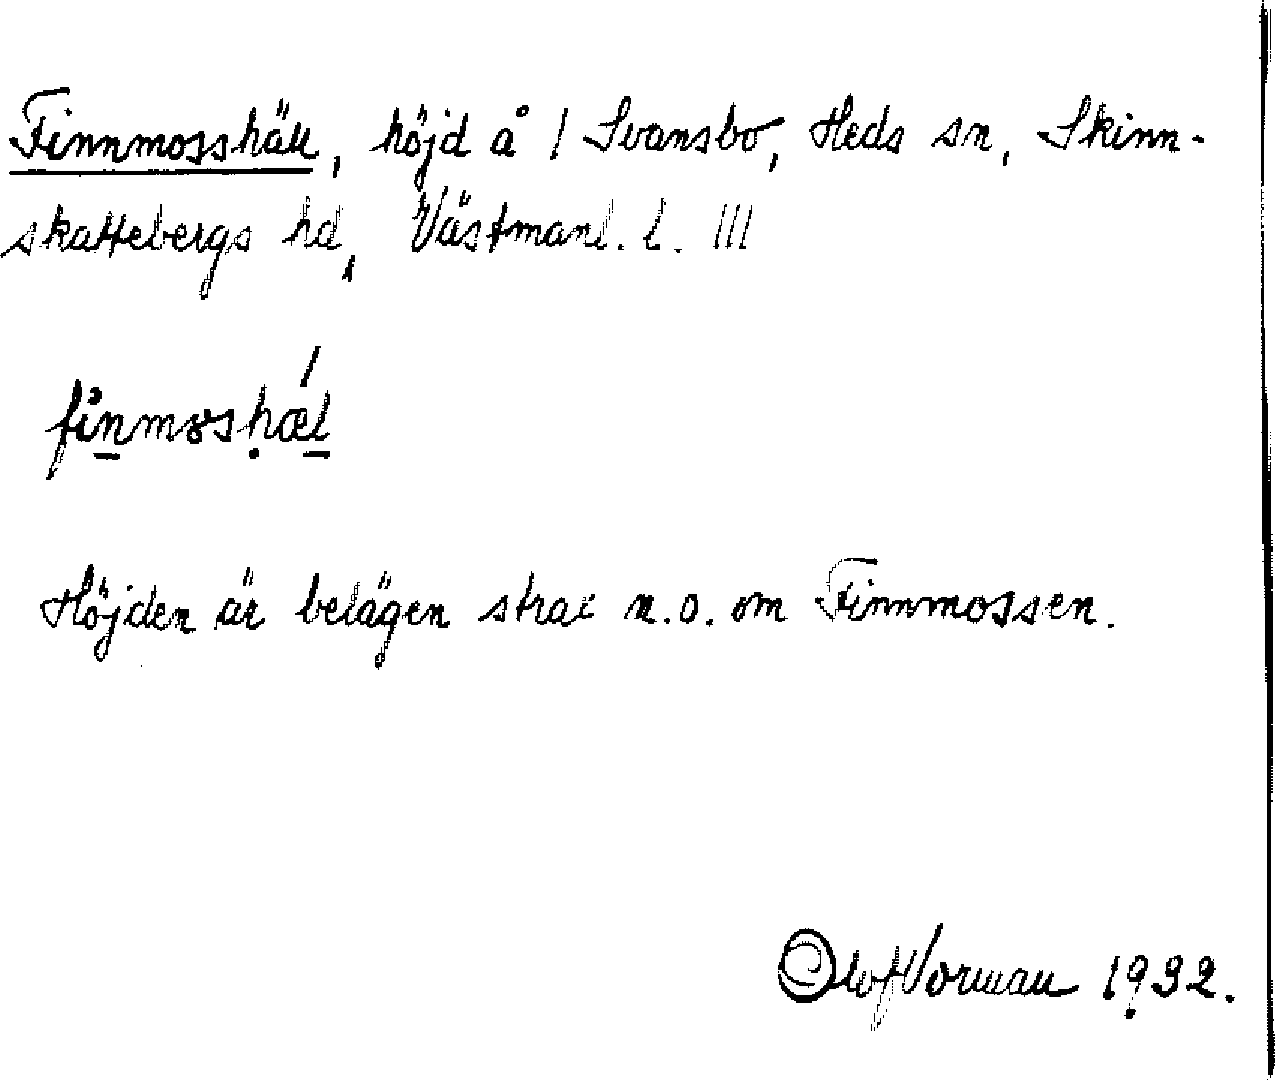 Finnmosshäll, höjd å / Svansbo, Heds sn, Skinn-
skattebergs hd, Västmanl. l. III
Höjden är belägen strax n.o. om Finnmossen.
Olof Norman 1932.